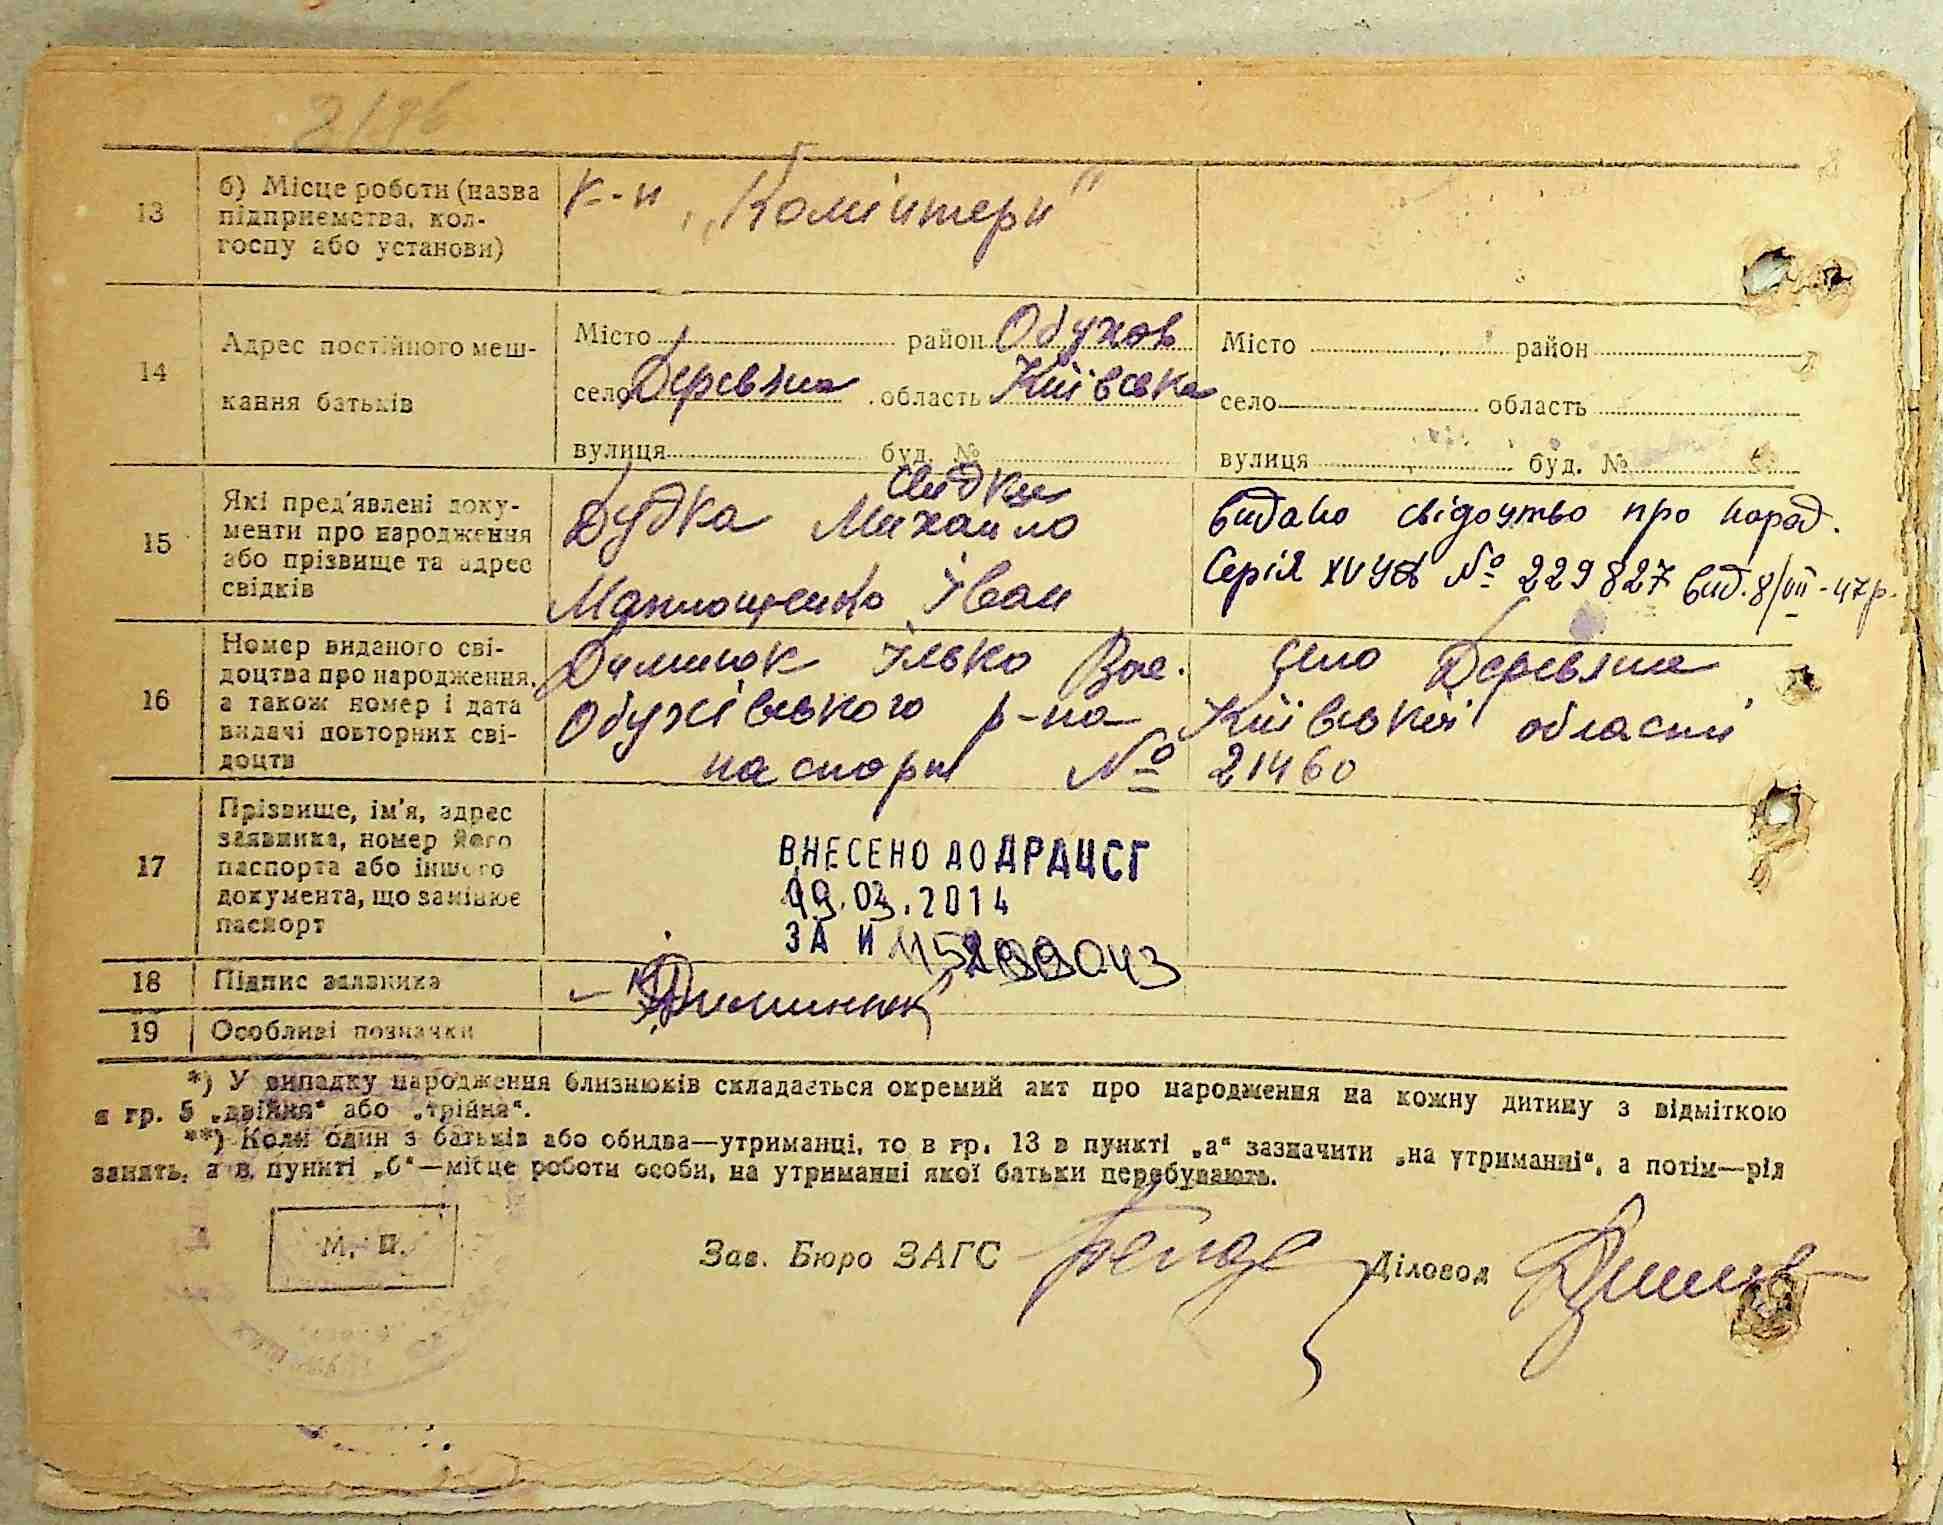 2/196
13
б) Місце роботи (назва
підприємства, кол-
госпу або установи)
к-п „Комінтерн"
14
Адрес постійного меш-
кання батьків
Місто район Обухов
село Деревяна область Київська
вулиця буд. №
Місто район
село область
вулиця буд. №
15
Які пред'явлені доку-
менти про народження
або прізвище та адрес
свідків
свідки
Дудка Михайло
Іван
видано свідоцтво про народ.
Серія XV УЯ № 229827 вид. 8/VII-47р.
16
Номер виданого сві-
доцтва про народження,
а також номер і дата
видачі повторних сві-
доцтв
Диминюк Ілько Вас. село Деревяна
Обухівського р-на Київської області
паспорт № 21460
17
Прізвище, ім'я, адрес
заявника, номер його
паспорта або іншого
документа, що замінює
паспорт
ВНЕСЕНО ДО ДРАЦСГ
19.03.2014
ЗА И
18
Підпис заявника
Диминюк
19
Особливі позначки
*) У випадку народження близнюків складається окремий акт про народження на кожну дитину з відміткою
в гр. 5 „двійня" або „трійня".
**) Коли один з батьків або обидва—утриманці, то в гр. 13 в пункті „а" зазначити „на утриманні", а потім—рід
занять, а в пункті „б"—місце роботи особи, на утриманні якої батьки перебувають.
М. П.
Зав. Бюро ЗАГС
Діловод